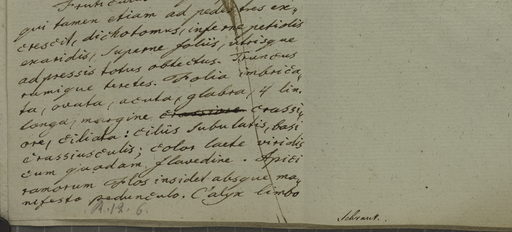 Fruticulus
qui tamen etiam ad pedes tres ex,
crescit, dichotomus, inferne petiolis
exaridis, superne foliis, utrisque
adpressis totus obtectus. Truncus
ramique teretes. Folia imbrica,
ta, ovata, acuta, glabra, 4 lin.
longa, margine crassiore crassi,
ore, ciliata: ciliis subulatis, basi
crassiusculis; color laete viridis
cum quadam flavedine. Apici
ramorum Flos insidet absque ma,
nifesto pedunculo. Calyx limbo
R. 12. 6.
Schraut.